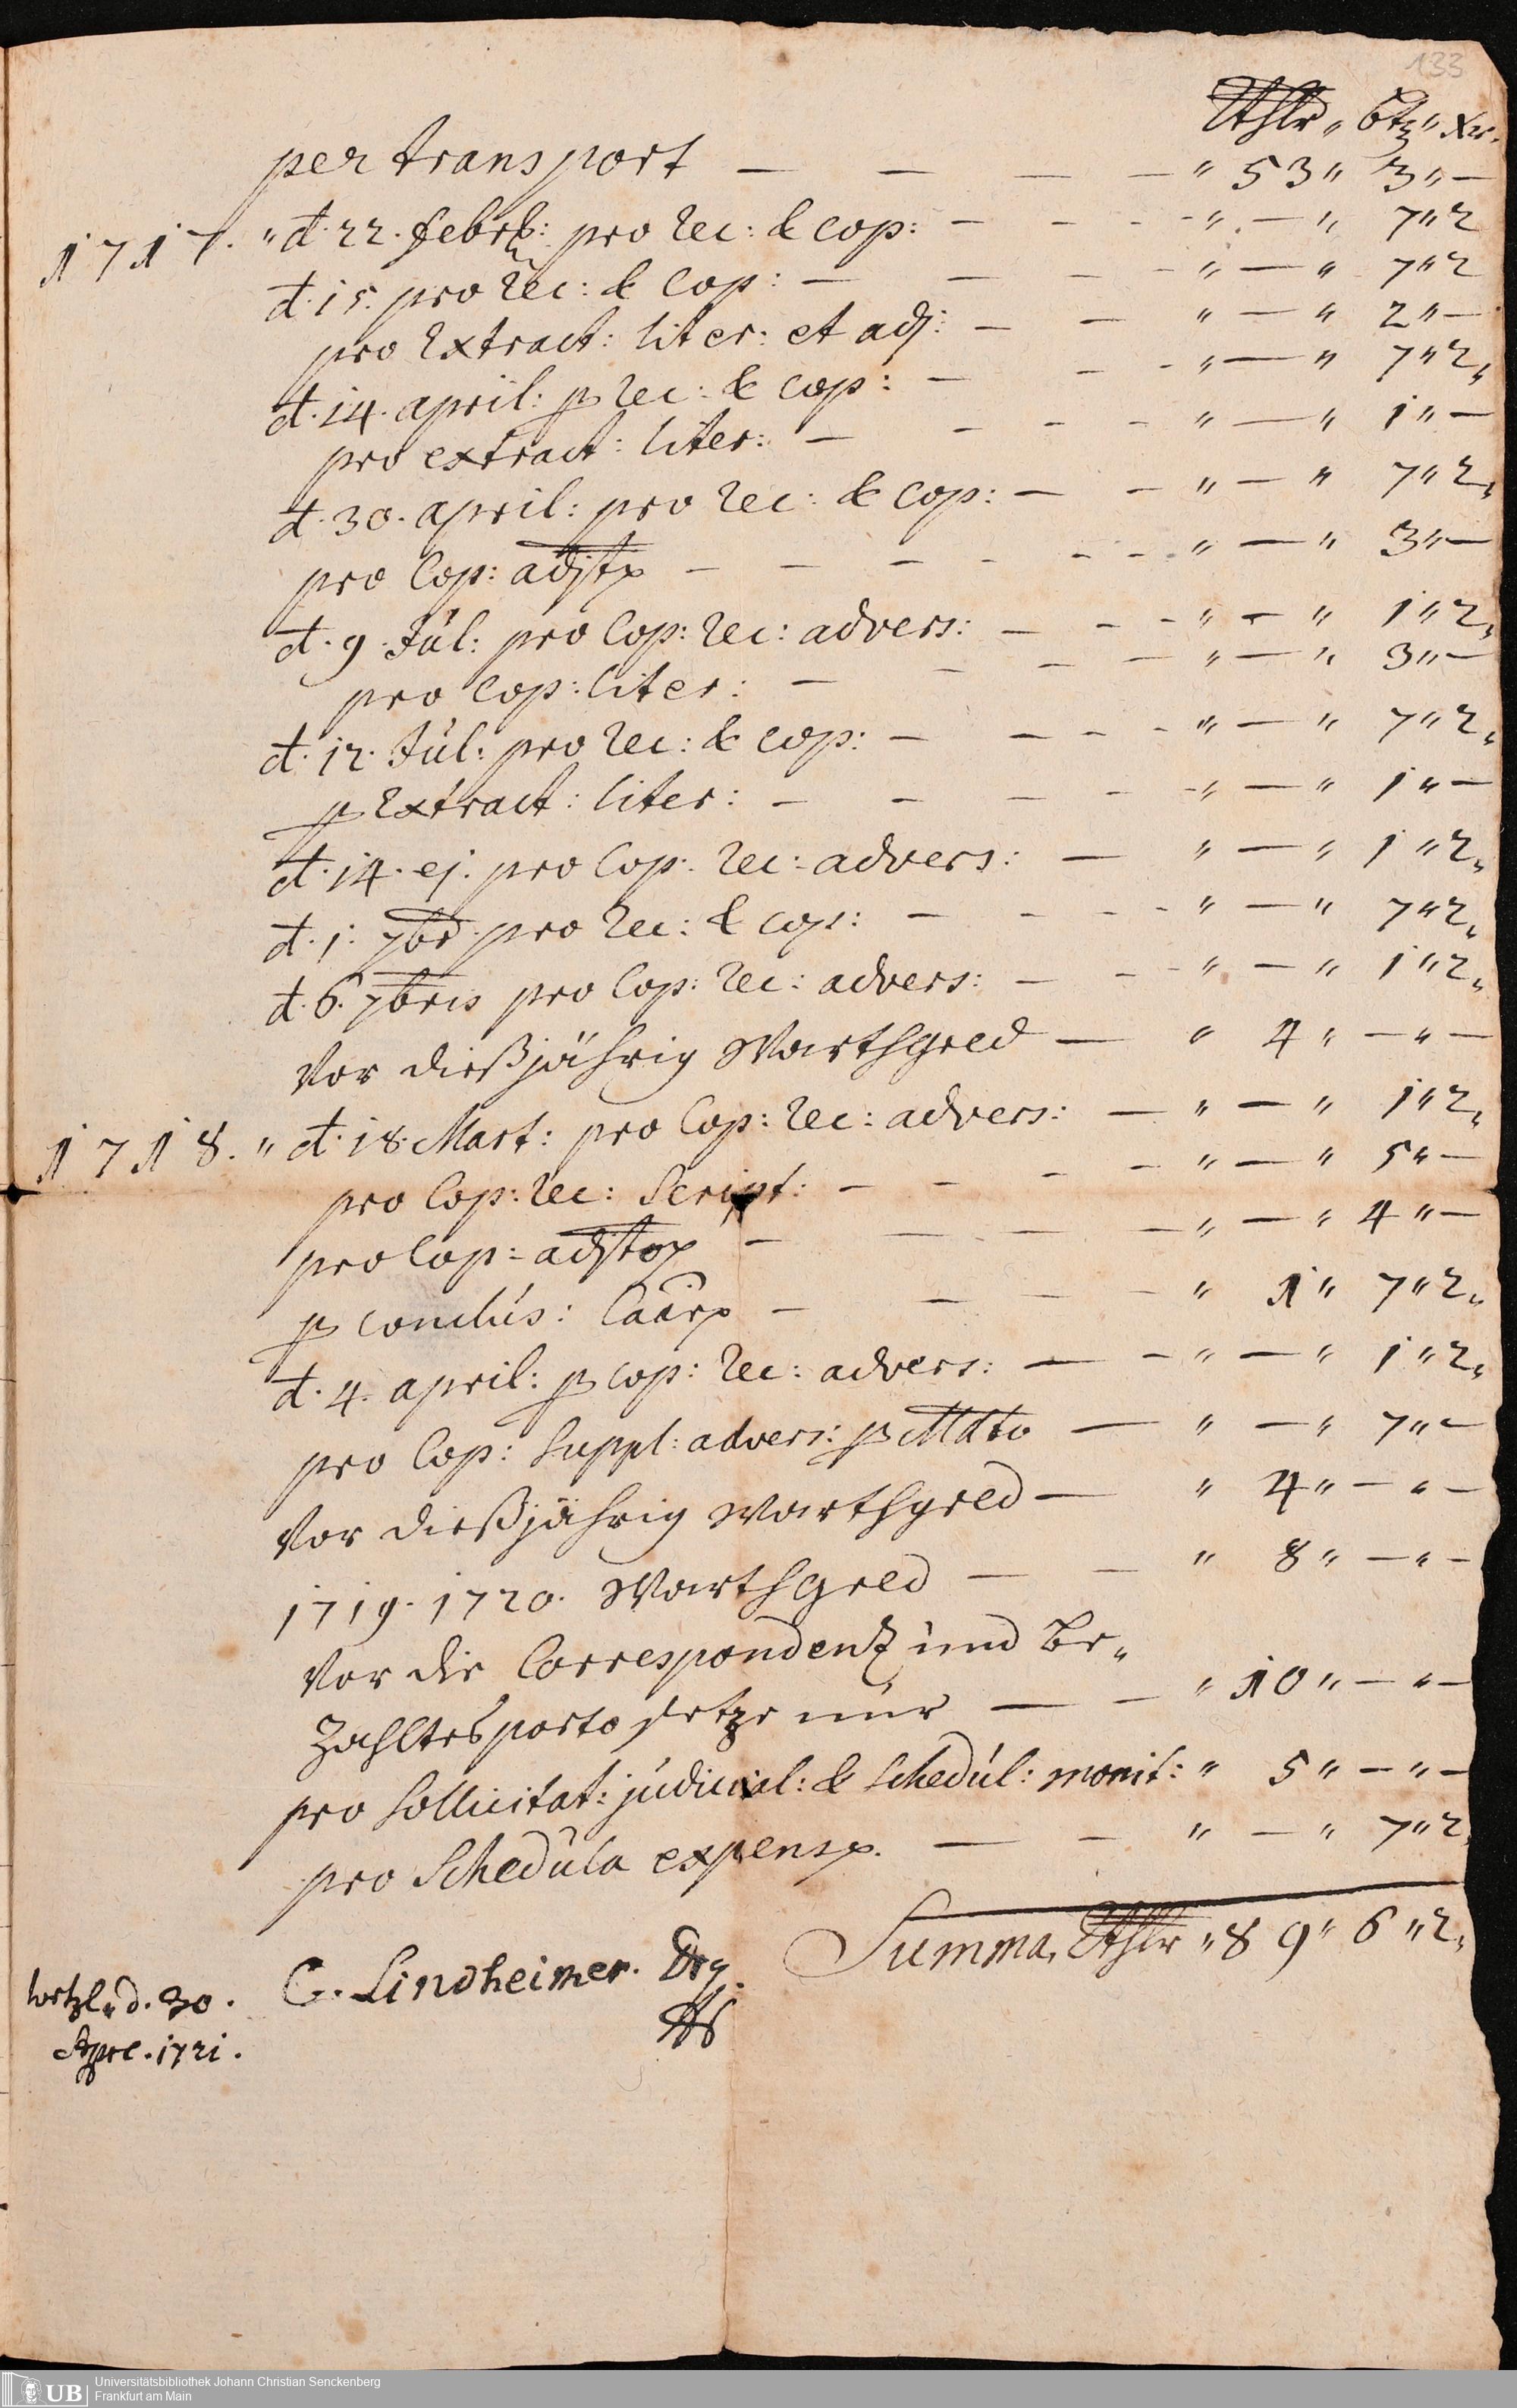 133
Rthlr „ btz „ Xr.
per transport — — — — „ 53 „ 3 „ —
1717. „ d. 22. febr: pro Rec: & Cop: — — — „ — „ 7 „ 2
d. 15. pro Rec: & Cop: — — — — „ — „ 7 „ 2
pro Extract: liter: et adj: — — „ — „ 2 „ —
d. 14. april: p Rec: & Cop: — — — „ — „ 7 „ 2„
pro extract: liter: — — — — „ — „ 1 „ —
d. 30. april: pro Rec: & Cop: — — „ — „ 7 „ 2„
pro Cop: adj — — — — — — „ — „ 3 „ —
d. 9. Júl: pro Cop: Rec: advers: — — — „ — „ 1 „ 2„
pro Cop: liter: — — — — „ — „ 3 „ —
d. 12. Júl: pro Rec: & Cop: — — — — „ — „ 7 „ 2„
p Extract: liter: — — — — — „ — „ 1 „ —
d. 14. ej. pro Cop: Rec: advers: — „ — „ 1 „ 2„
d. 1. 7br pro Rec: & Cop: — — — — „ — „ 7 „ 2„
d. 6. 7bris pro Cop: Rec: advers: — — — „ — „ 1 „ 2„
Vor dießjährig Warthgeld — „ 4 „ — „ —
1718. „ d. 18. Mart: pro Cop: Rec: advers: — „ — „ 1 „ 2„
pro Cop: Rec: Script: — — — — „ — „ 5 „ —
pro Cop: adj — — — — „ — „ 4 „ —
p conclús: — — — — „ 1 „ 7 „ 2„
d. 4. april: p Cop: Rec: advers: — — „ — „ 1 „ 2„
pro Cop: Suppl: advers: p Mdto — „ — „ 7 „ —
Vor dießjährig Warthgeld — „ 4 „ — „ —
1719. 1720. Warthgeld — — „ 8 „ — „ —
Vor die Correspondenz und Be„
zahltes porto setze nur — — „ 10 „ — „ —
pro Sollicitat: júdicial: & Schedúl: monit: „ 5 „ — „ —
pro Schedúla expens. — — „ — „ 7 „ 2
Summa, Rthlr „ 89 „ 6 „ 2„
C. Lindheimer. Drg.
Wetzl„ d. 30.
Apr. 1721.
UB
Universitätsbibliothek Johann Christian Senckenberg
Frankfurt am Main